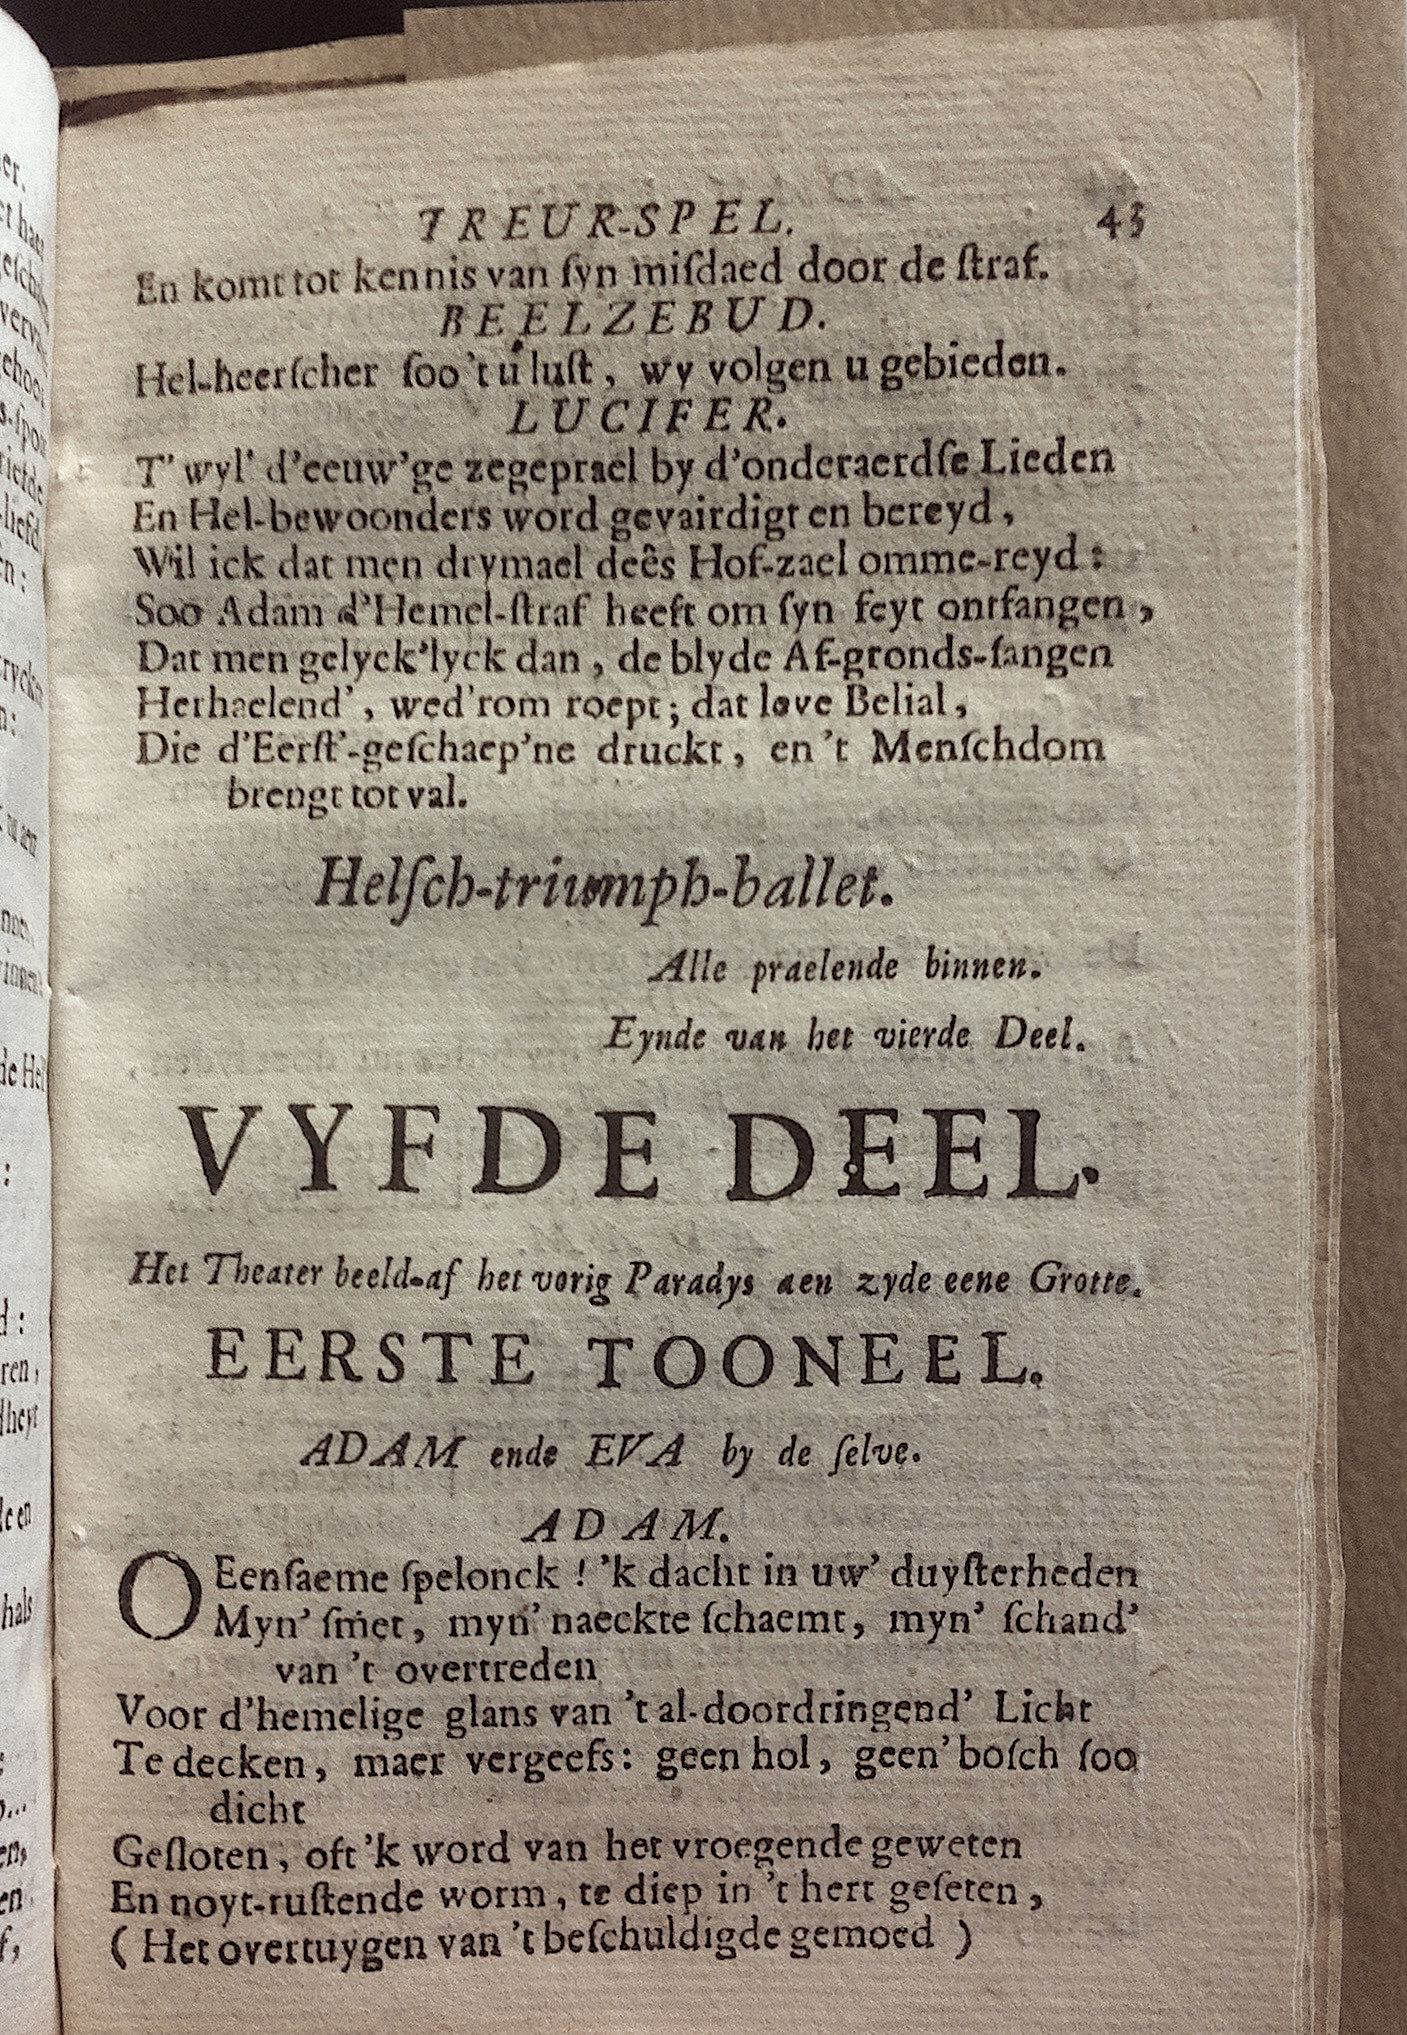 TREUR-SPEL. 43
En komt tot kennis van ſyn miſdaed door de ſtraf.
BEELZEBUD.
Hel-heerſcher ſoo 't u luſt, wy volgen u gebieden.
LUCIFER.
T' wyl' d'eeuw'ge zegeprael by d'onderaerdſe Lieden
En Hel-bewoonders word gevairdigt en bereyd,
Wil ick dat men drymael deês Hof-zael omme-reyd:
Soo Adam d'Hemel-ſtraf heeft om ſyn feyt ontfangen,
Dat men gelyck'lyck dan, de blyde Af-gronds-ſangen
Herhaelend', wed'rom roept; dat love Belial,
Die d'Eerſt'-geſchaep'ne druckt, en 't Menſchdom
brengt tot val.
Helſch-triumph-ballet.
Alle praelende binnen.
Eynde van het vierde Deel.
VYFDE DEEL.
Het Theater beeld-af het vorig Paradys aen zyde eene Grotte.
EERSTE TOONEEL.
ADAM ende EVA by de ſelve.
ADAM.
O Eenſaeme ſpelonck ! 'k dacht in uw' duyſterheden
Myn' ſmet, myn' naeckte ſchaemt, myn' ſchand'
van 't overtreden
Voor d'hemelige glans van 't al-doordringend' Licht
Te decken, maer vergeefs: geen hol, geen' boſch ſoo
dicht
Geſloten, oft 'k word van het vroegende geweten
En noyt-ruſtende worm, te diep in 't hert geſeten,
( Het overtuygen van 't beſchuldigde gemoed )